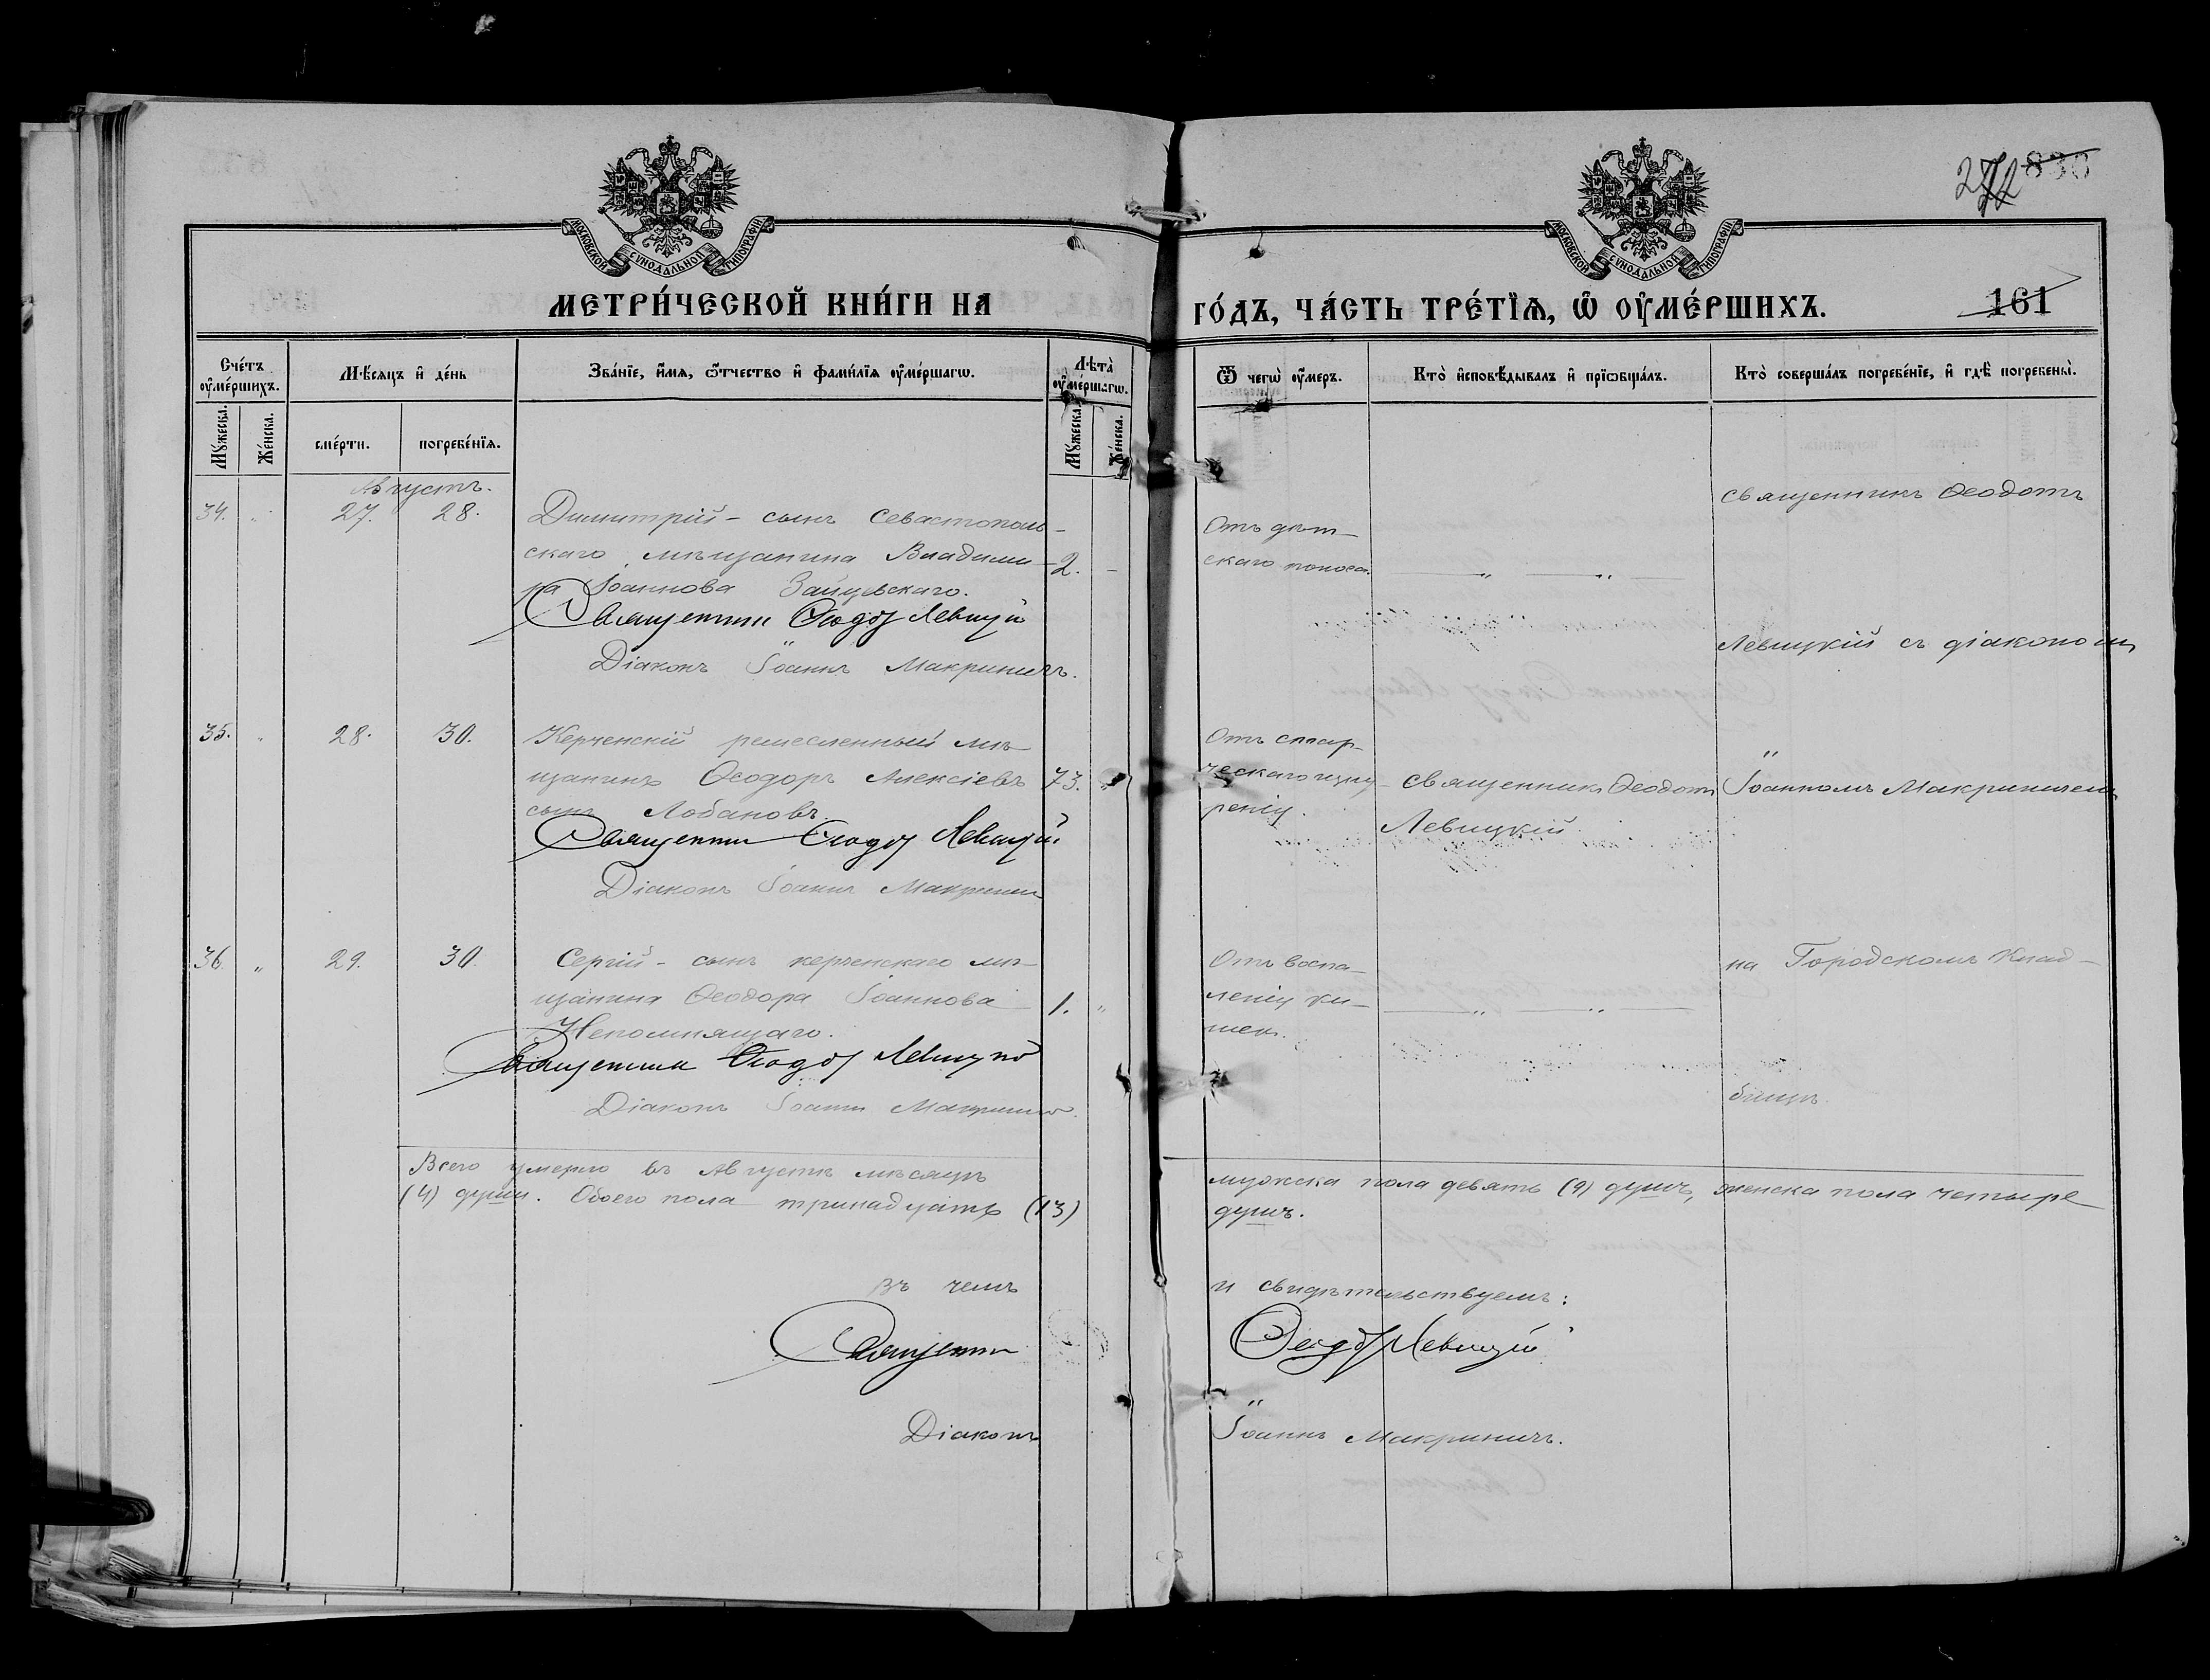 272 830
МОСКОВСКОЙ СѴНОДАЛЬНОЙ ТИПОГРАФІИ
МОСКОВСКОЙ СѴНОДАЛЬНОЙ ТИПОГРАФІИ
МЕТРИ́ЧЕСКОЙ КНИ́ГИ НА ГО́ДЪ, ЧА́СТЬ ТРЕ́ТЇѦ, Ѡ҆ ОУ҆МЕ́РШИХЪ.
161
Сче́тъ оу҆ме́ршихъ.
Мꙋ́жеска.
Же́нска.
Мѣ́сѧцъ и҆ де́нь
сме́рти.
погребе́нїѧ.
Зва́нїе, и҆́мѧ, ѻ҆́тчество и҆ фами́лїѧ оу҆ме́ршагѡ.
Лѣ́та оу҆ме́ршагѡ.
Мꙋ́жеска.
Же́нска.
Ѿ чегѡ̀ оу҆́меръ.
Кто̀ и҆сповѣ́дывалъ и҆ прїѡбща́лъ.
Кто̀ соверша́лъ погребе́нїе, и҆ гдѣ̀ погребены̀.
Августъ.
34. " 27. 28. Димитрій - сынъ Севастополь-
скаго мѣщанина Владими- 2. -
ра Іоаннова Зайцевскаго.
Священникъ Ѳеодотъ Левицкій
Діаконъ Іоаннъ Макриничъ.
Отъ дѣт-
скаго поноса.
— " — " —
священникъ Ѳеодотъ
Левицкій съ діакономъ
35. " 28. 30. Керченскій ремесленный мѣ-
щанинъ Ѳеодоръ Алексіевъ 73. "
сынъ Лобановъ.
Священникъ Ѳеодотъ Левицкій.
Діаконъ Іоаннъ Макриничъ
Отъ стар-
ческаго изну-
ренія.
священникъ Ѳеодотъ
Левицкій
Іоанномъ Макриничемъ
36. " 29. 30. Сергій - сынъ керченскаго мѣ-
щанина Ѳеодора Іоаннова 1. "
Непомнящаго.
Священникъ Ѳеодотъ Левицкій
Діаконъ Іоаннъ Макриничъ.
Отъ воспа-
ленія ки-
шек.
— " — " —
на Городскомъ Клад-
бищѣ.
Всего умерло въ Августѣ мѣсяцѣ мужска пола девять (9) душъ, женска пола четыре
(4) души. Обоего пола тринадцать (13) душъ.
Въ чемъ и свидѣтельствуемъ:
Священникъ Ѳеодотъ Левицкій
Діаконъ Іоаннъ Макриничъ.